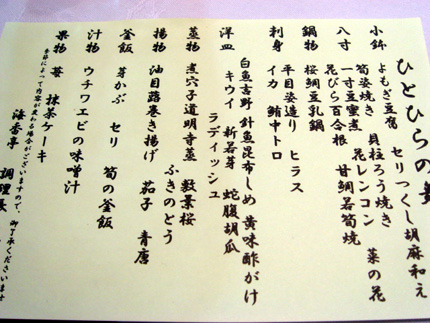 ひとひらの
小鉢 よもぎ豆腐 セリつくし胡麻和え
筍姿焼き 貝柱ろう焼き 菜の花
八寸 一寸豆蜜煮 花レンコン
花びら百合根 甘鯛若筍焼
鍋物 桜鯛豆乳鍋
刺身 平目姿造り ヒラス
イカ 鮪中トロ
洋皿 白魚吉野 針魚昆布しめ 黄味酢がけ
キウイ 新若芽 蛇腹胡瓜
ラディッシュ
蒸物 煮穴子道明寺蒸 敷葉桜
ふきのとう
揚物 油目蕗巻き揚げ 茄子 青唐
釜飯 芽かぶ セリ 筍の釜飯
汁物 ウチワエビの味噌汁
果物 苺 抹茶ケーキ
季節によって内容が変わる場合がございますので、御了承くださいませ
海香亭 調理長